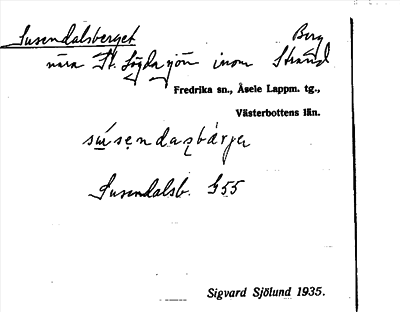 Susendalsberget Berg
nära St. Lögdasjön inom Strand
Fredrika sn., Åsele Lappm. tg.,
Västerbottens län.
Susendalsb. G55
Sigvard Sjölund 1935.